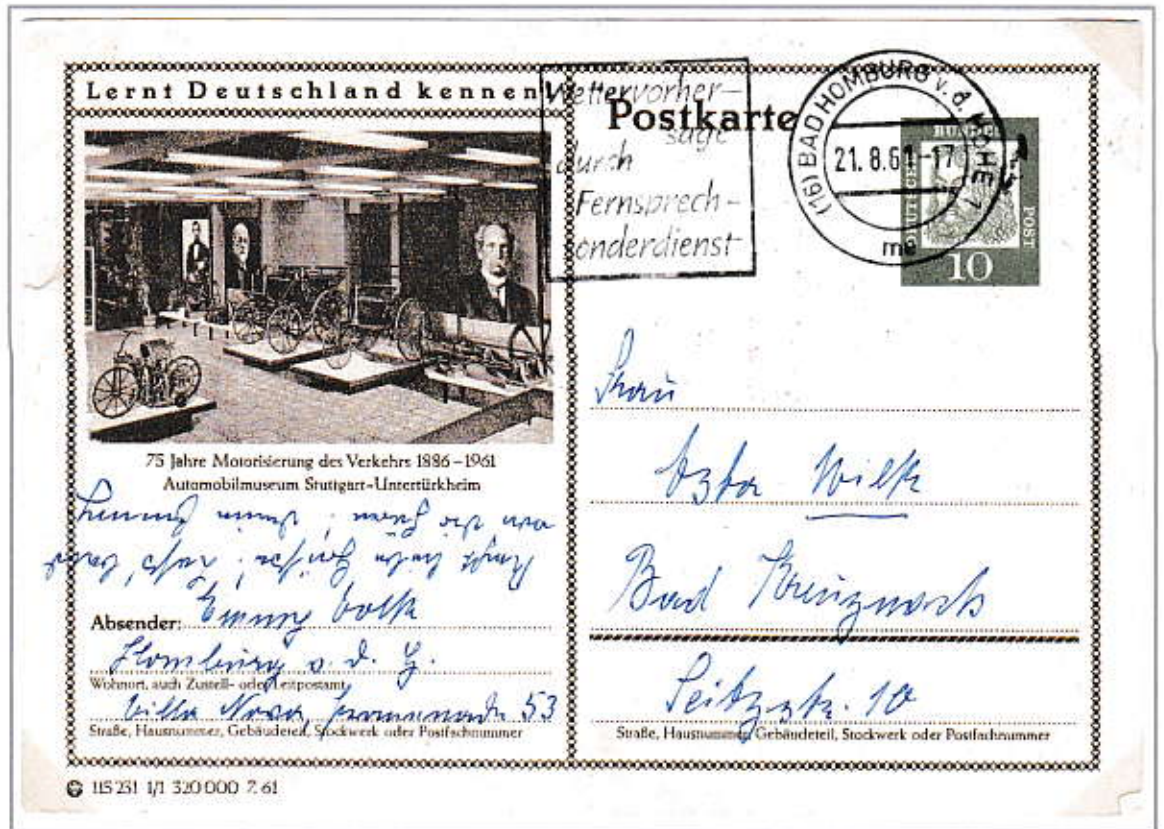 Lernt Deutschland kennen
Wettervorher-
sage
durch
Fernsprech-
sonderdienst
Postkarte
(16) BAD HOMBURG v.d. HÖHE 1
21.8.61-17
me
DEUTSCHE
BUNDES
POST
10
75 Jahre Motorisierung des Verkehrs 1886–1961
Automobilmuseum Stuttgart-Untertürkheim
Absender: Emmy Volk
Homburg v. d. H.
Wohnort, auch Zustell- oder Leitpostamt
Villa Nova, Promenade 53
Straße, Hausnummer, Gebäudeteil, Stockwerk oder Postfachnummer
Frau
Wilk
Bad Kreuznach
Seitzstr. 10
Straße, Hausnummer, Gebäudeteil, Stockwerk oder Postfachnummer
115 231 1/1 320 000 7. 61